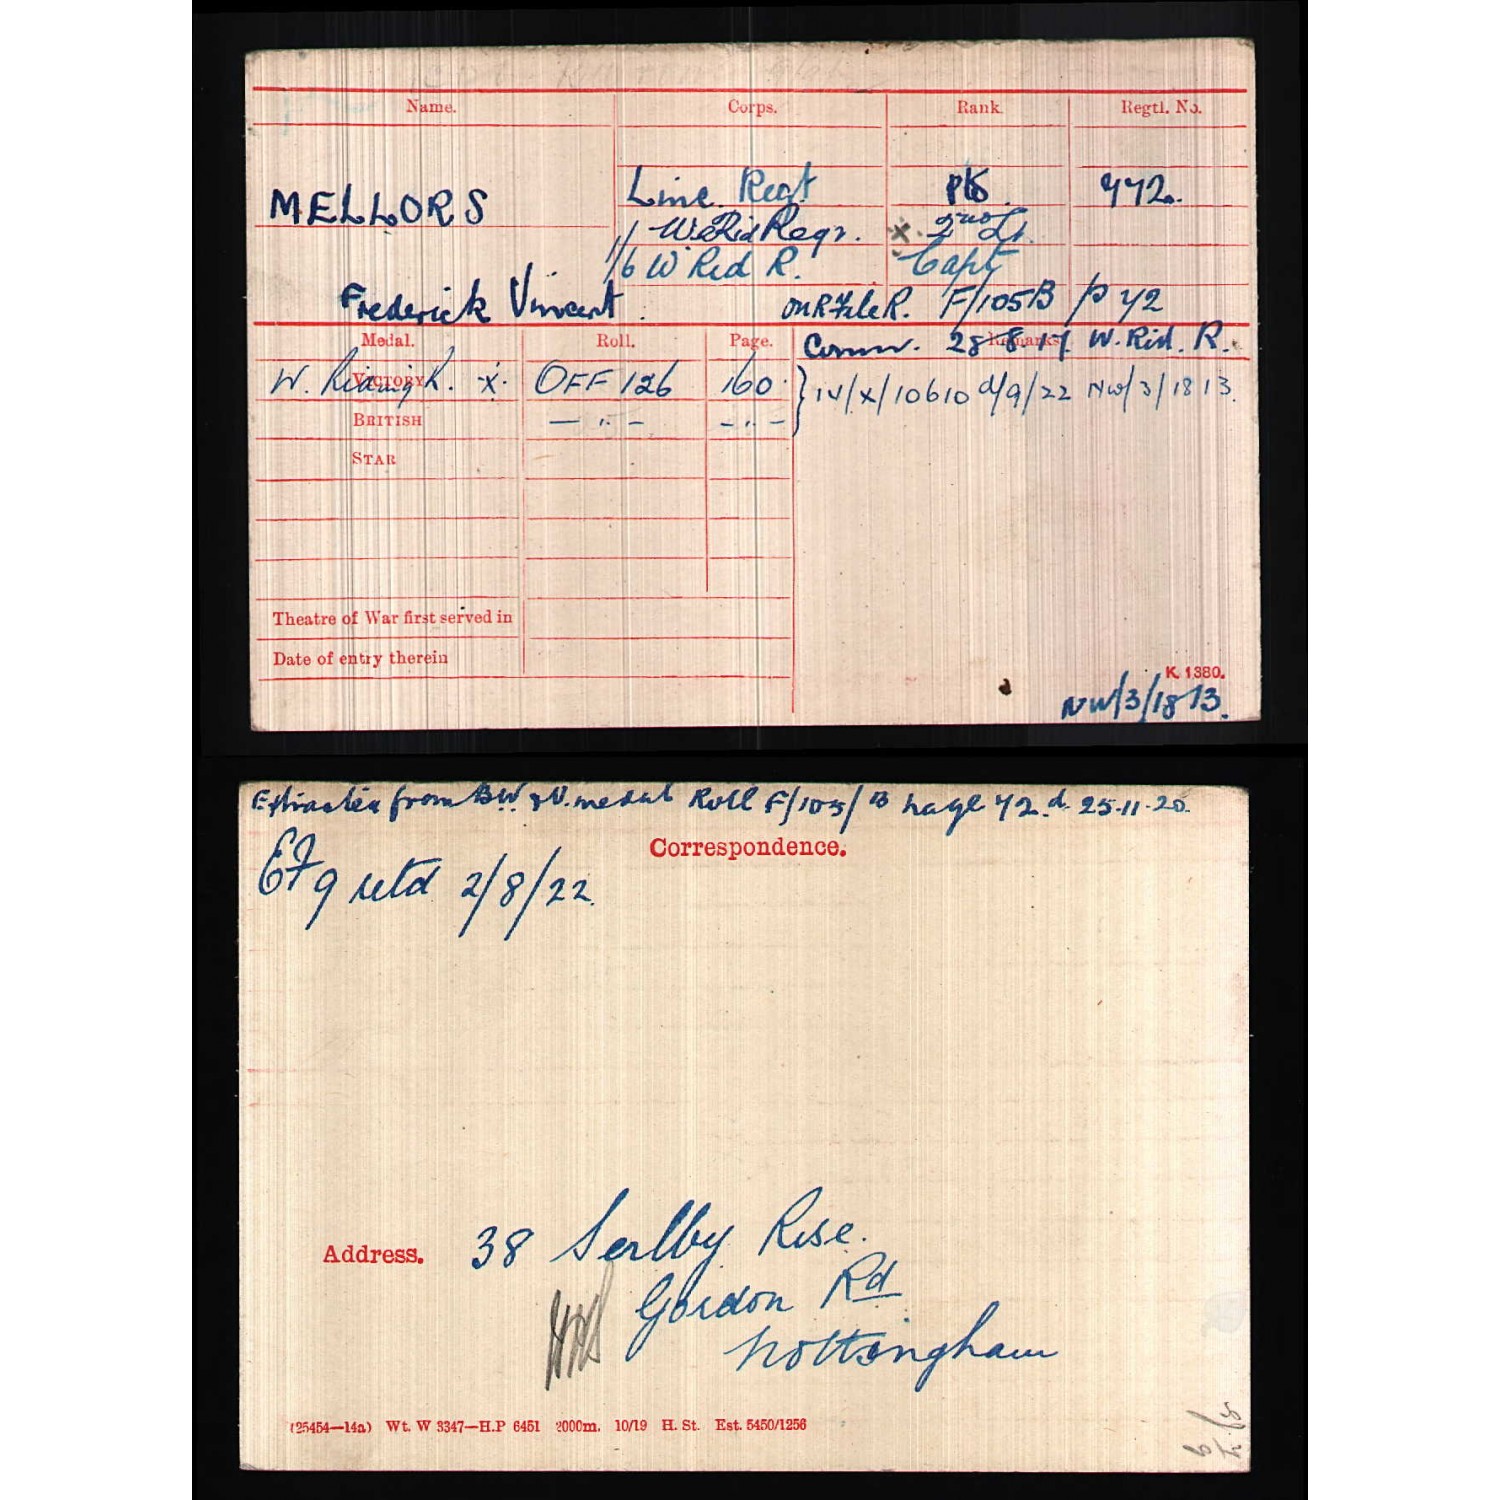 Name. Corps. Rank. Regtl. No.
Linc. Regt Pte 772.
MELLORS
1/ W. Rid Regt. X. 2nd Lt.
1/6 W Rid R. Capt
Frederick Vincent. F/105B p 72
Medal. Roll. Page. Remarks
Comm. 28-8-17. W. Rid. R.
VICTORY W. Riding R. X. OFF 126 160. } IV/X/10610 d/9/22 NW/3/1813.
BRITISH — " — — " —
STAR
Theatre of War first served in
Date of entry therein
K. 1380.
NW/3/1813.
Extracted from BW & V. medal Roll F/105/B page 72. d. 25-11-20.
Correspondence.
EF9 retd 2/8/22.
Address. 38 Serlby Rise.
Gordon Rd
Nottingham
(25454—14a) Wt. W 3347—H.P 6451 2000m. 10/19 H. St. Est. 5450/1256